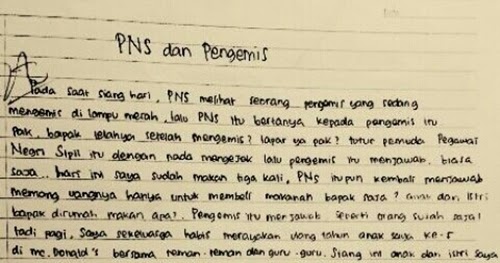 PNS dan Pengemis
Pada saat siang hari, PNS melihat seorang pengemis yang sedang
mengemis di lampu merah, lalu PNS itu bertanya kepada pengemis itu
pak, bapak lelahya setelah mengemis? lapar ya pak? tutur pemuda Pegawai
Negri Sipil itu dengan nada mengejek lalu pengemis itu menjawab, biasa
saja.. hari ini saya sudah makan tiga kali, PNS itupun kembali menjawab
memang uangnya hanya untuk membeli makanan bapak saja? anak dan istri
bapak dirumah makan apa?. Pengemis itu menjawab seperti orang susah saja!
tadi pagi, saya sekeluarga habis merayakan ulang tahun anak saya ke-5
di mc. Donald's bersama teman-teman dan guru-guru. Siang ini anak dan istri saya